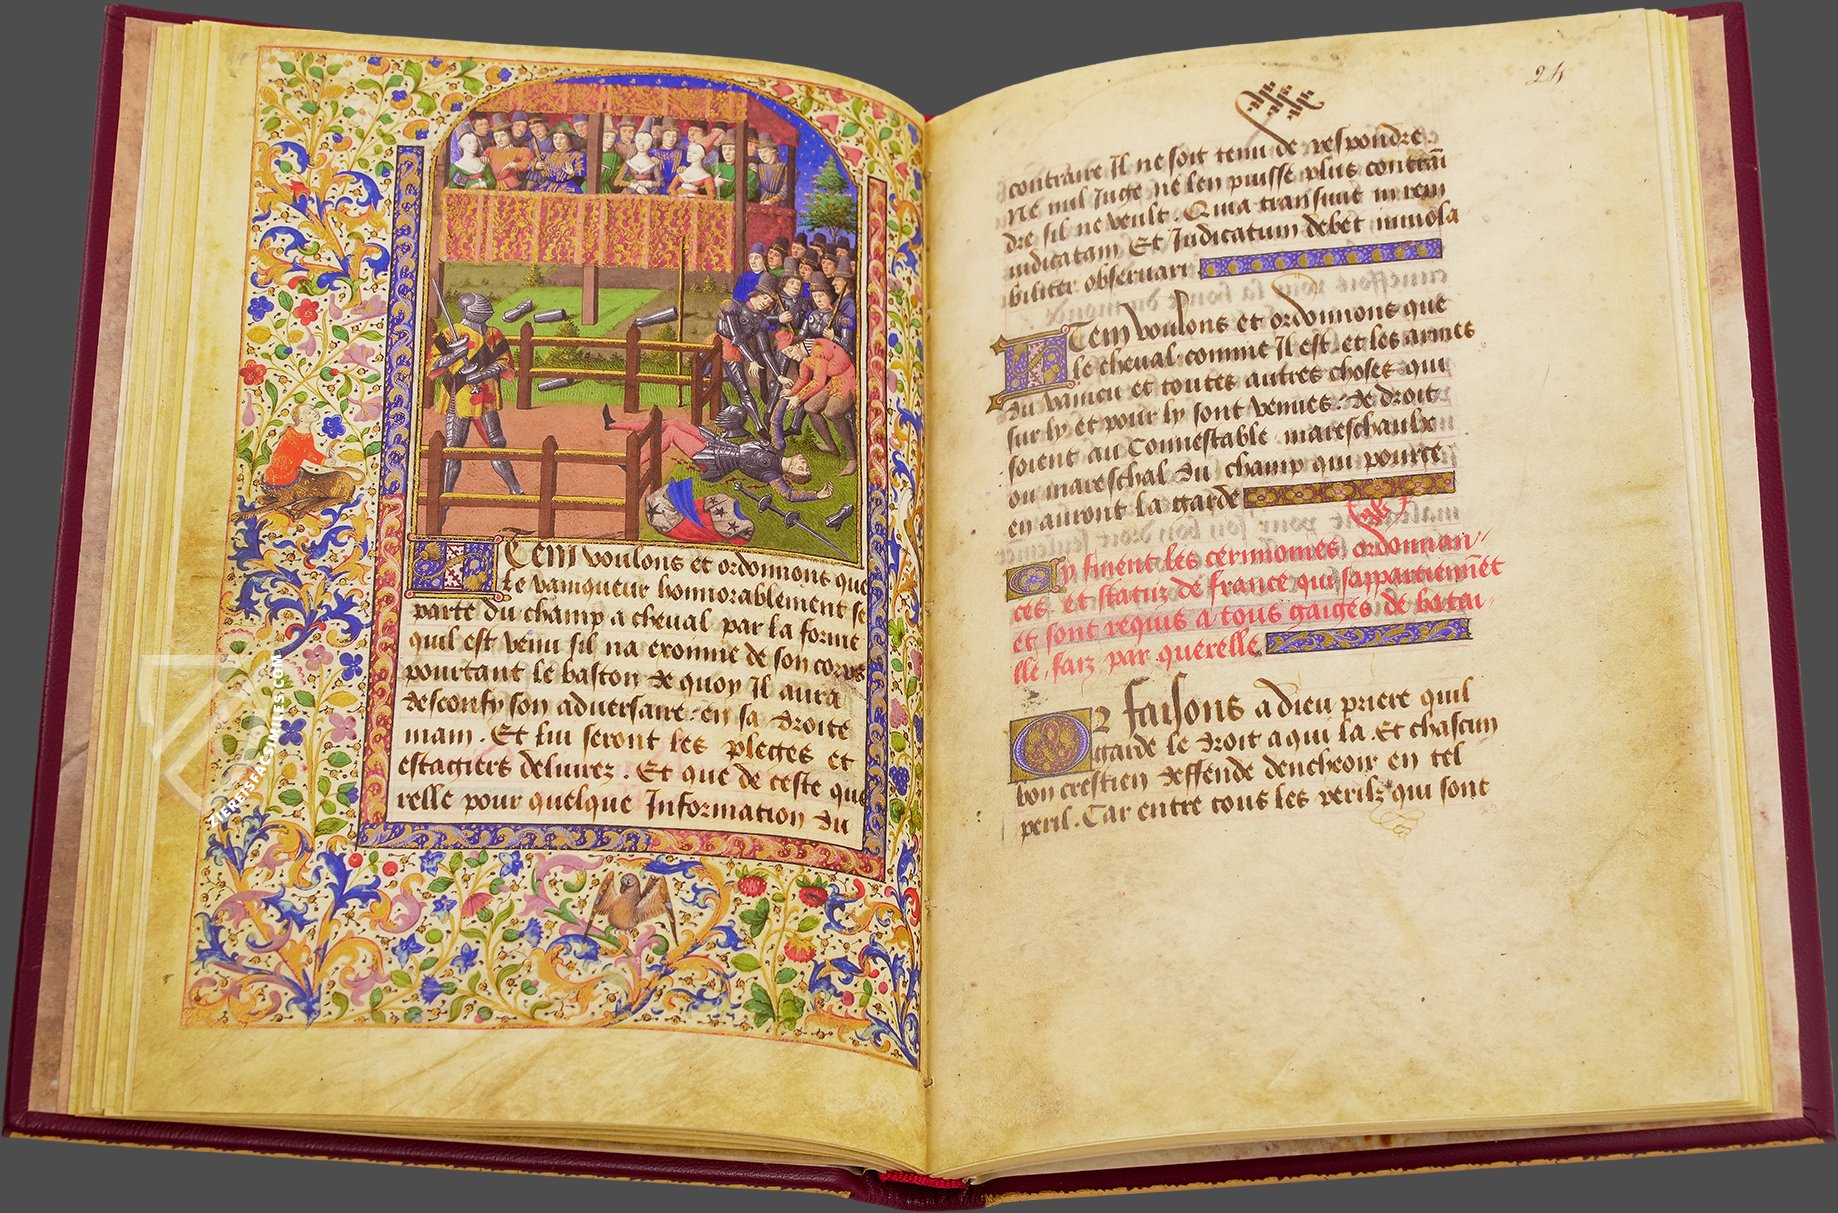 Item voulons et ordonnons que
le vainqueur honnorablement se
parte du champ a cheval par la forme
quil est venu sil na exonnie de son corps
pourtant le baston de quoy Il aura
desconfy son adversaire en sa droite
main . Et lui seront les pleiges et
estagiers delivrez . Et que de ceste que
relle pour quelque Information du
24
contraire Il ne soit tenu de respondre
Ne nul Juge ne len puisse plus contrai
dre sil ne veult . Qui a transivit in rem
iudicatam Et Iudicatum debet inviola
biliter observari
Item voulons et ordonnons que
le cheval comme Il est et les armes
du vaincu et toutes autres choses qui
sur ly et pour ly sont venues . de droit
soient au Connestable . mareschaulx
ou mareschal du champ qui pource
en auront la garde
Cy finent les cerimonies ordonnan
ces . et statuz de france qui sappartiennēt
et sont requis a tous gaiges de batai
lle . faiz par querelle
Or faisons a dieu priere quil
garde le droit a qui la . Et chascun
bon crestien deffende dencheoir en tel
peril . Car entre tous les perilz qui sont
ZIEREISFACSIMILES.COM